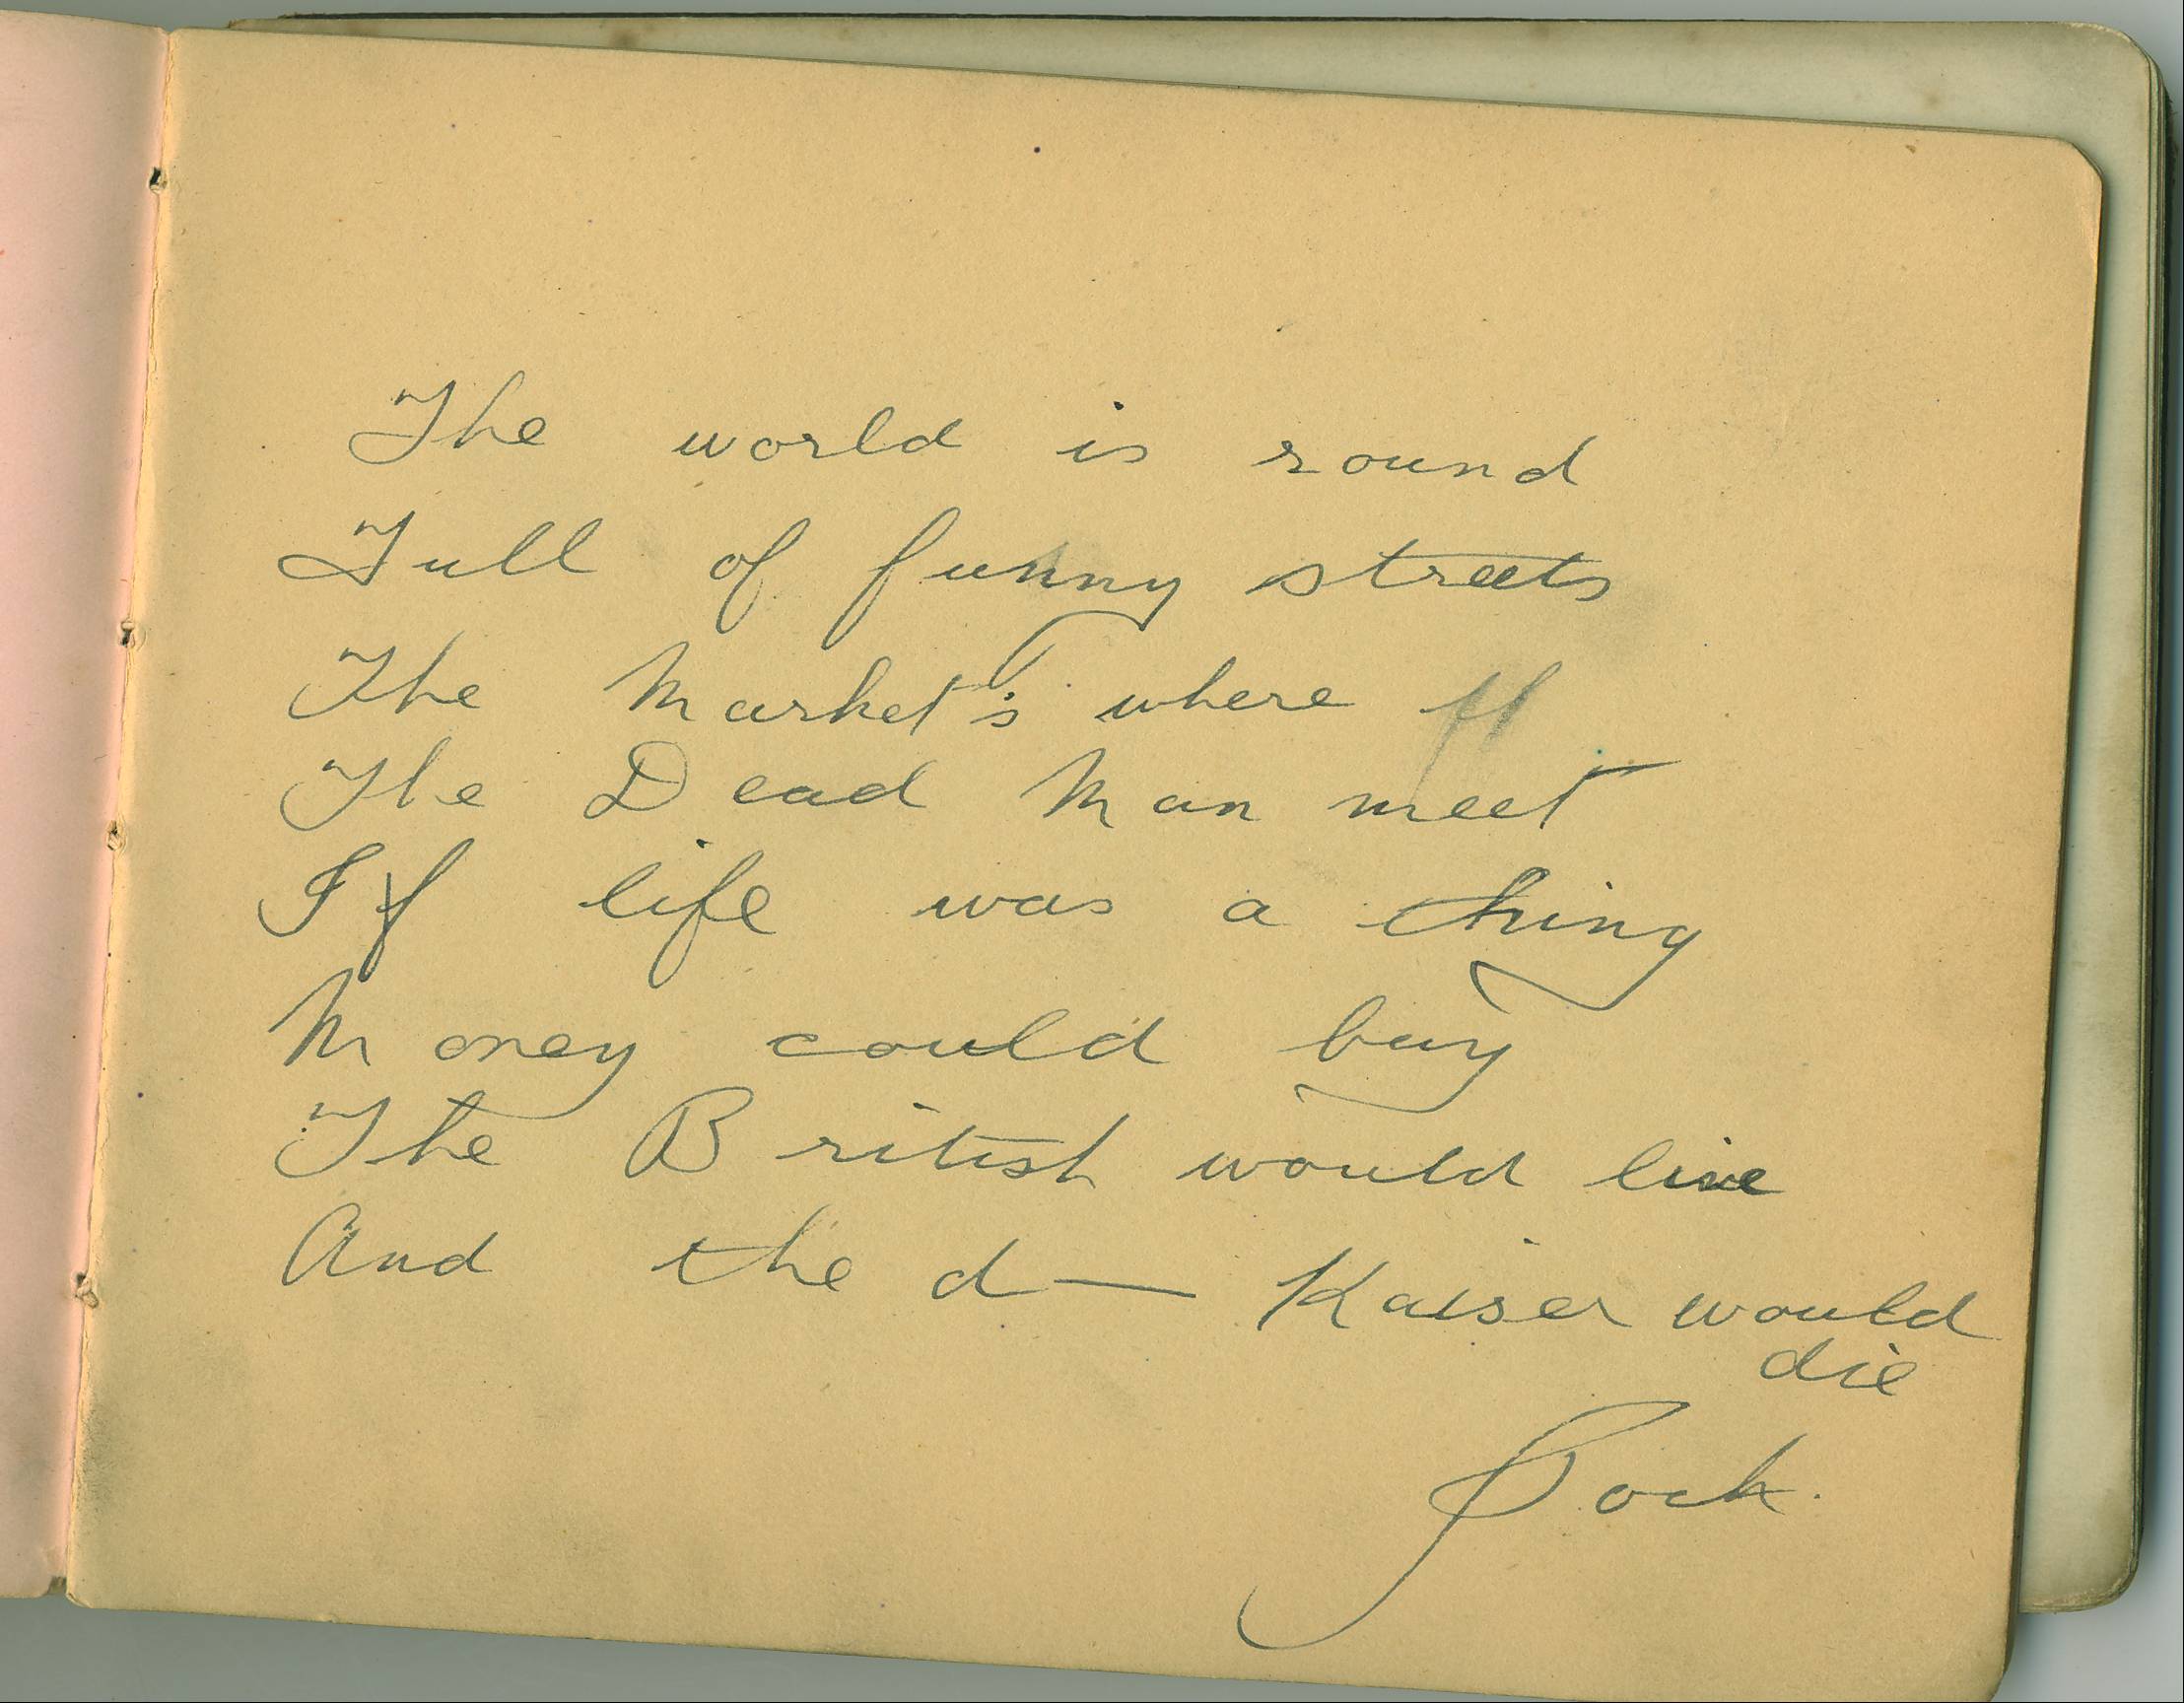 The world is round
Full of funny streets
The Market's where
The Dead Man meet
If life was a thing
Money could buy
The British would live
And the d— Kaiser would
die
Jock.